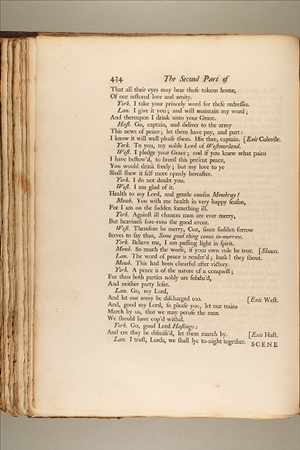 434 The Second Part of
That all their eyes may bear these tokens home,
Of our restored love and amity.
York. I take your princely word for these redresses.
Lan. I give it you; and will maintain my word;
And thereupon I drink unto your Grace.
Hast. Go, captain, and deliver to the army
This news of peace; let them have pay, and part:
I know it will well please them. Hie thee, captain. [Exit Colevile.
York. To you, my noble Lord of Westmorland.
West. I pledge your Grace; and if you knew what pains
I have bestow'd, to breed this present peace,
You would drink freely; but my love to ye
Shall shew it self more openly hereafter.
York. I do not doubt you.
West. I am glad of it.
Health to my Lord, and gentle cousin Mowbray!
Mowb. You wish me health in very happy season,
For I am on the sudden something ill.
York. Against ill chances men are ever merry,
But heaviness fore-runs the good event.
West. Therefore be merry, Coz, since sudden sorrow
Serves to say thus, Some good thing comes to-morrow.
York. Believe me, I am passing light in spirit.
Mowb. So much the worse, if your own rule be true. [Shouts.
Lan. The word of peace is render'd; hark! they shout.
Mowb. This had been chearful after victory.
York. A peace is of the nature of a conquest;
For then both parties nobly are subdu'd,
And neither party loser.
Lan. Go, my Lord,
And let our army be discharged too. [Exit West.
And, good my Lord, so please you, let our trains
March by us, that we may peruse the men
We should have cop'd withal.
York. Go, good Lord Hastings:
And ere they be dismiss'd, let them march by. [Exit Hast.
Lan. I trust, Lords, we shall lye to-night together.
SCENE